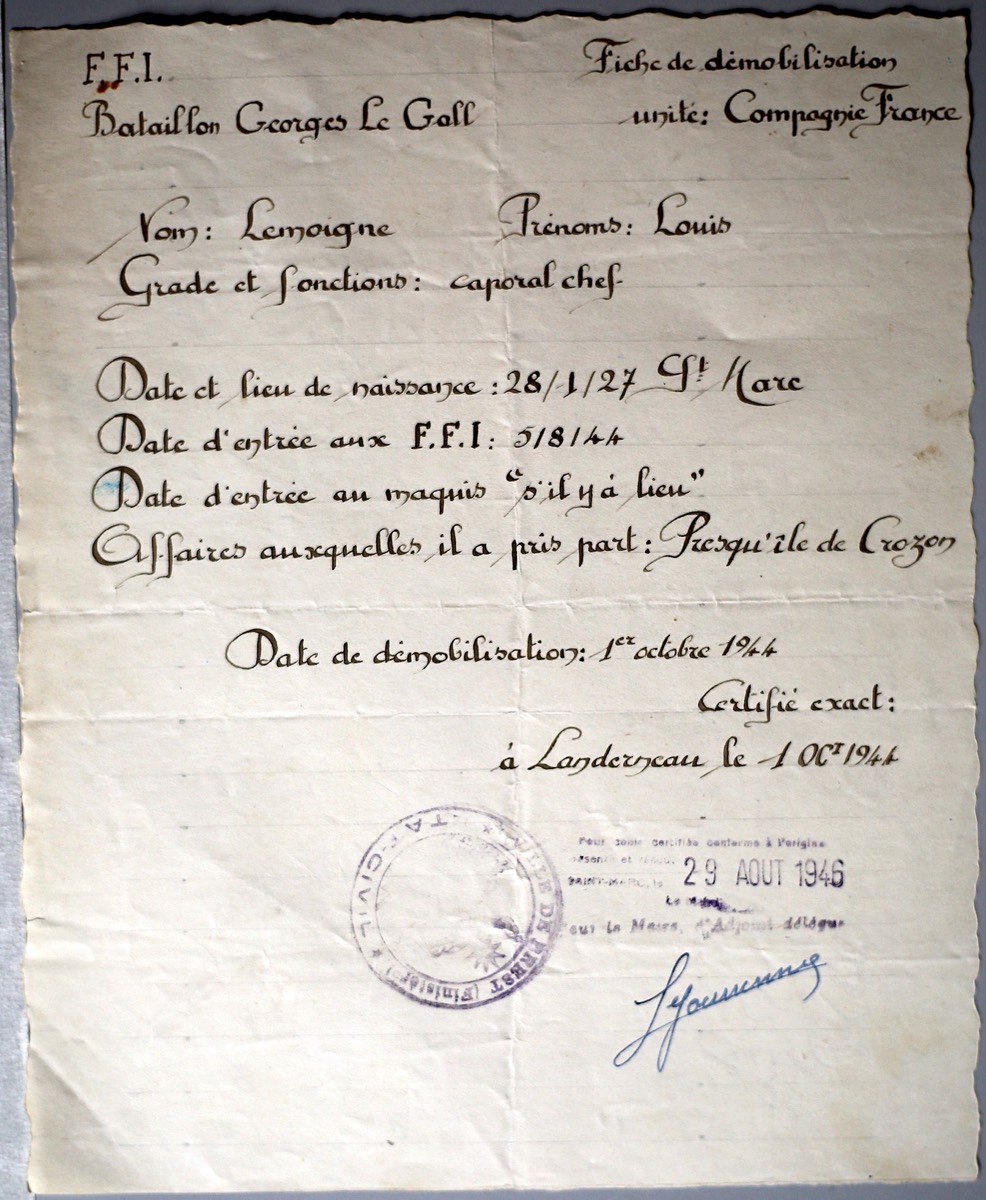 F.F.I.
Fiche de démobilisation
Bataillon Georges Le Gall
unité: Compagnie France
Nom: Lemoigne Prénoms: Louis
Grade et fonctions: caporal chef
Date et lieu de naissance: 28/1/27 St Marc
Date d'entrée aux F.F.I: 5/8/44
Date d'entrée au maquis "s'il y à lieu"
Affaires auxquelles il a pris part: Presqu'île de Crozon
Date de démobilisation: 1er octobre 1944
Certifié exact:
à Landerneau le 1 OCT 1944
VILLE DE BREST (Finistère) * ETAT-CIVIL *
Pour copie certifiée conforme à l'original
présenté et
SAINT-MARC, le 29 AOUT 1946
Le Maire
Pour le Maire, l'Adjoint délégué